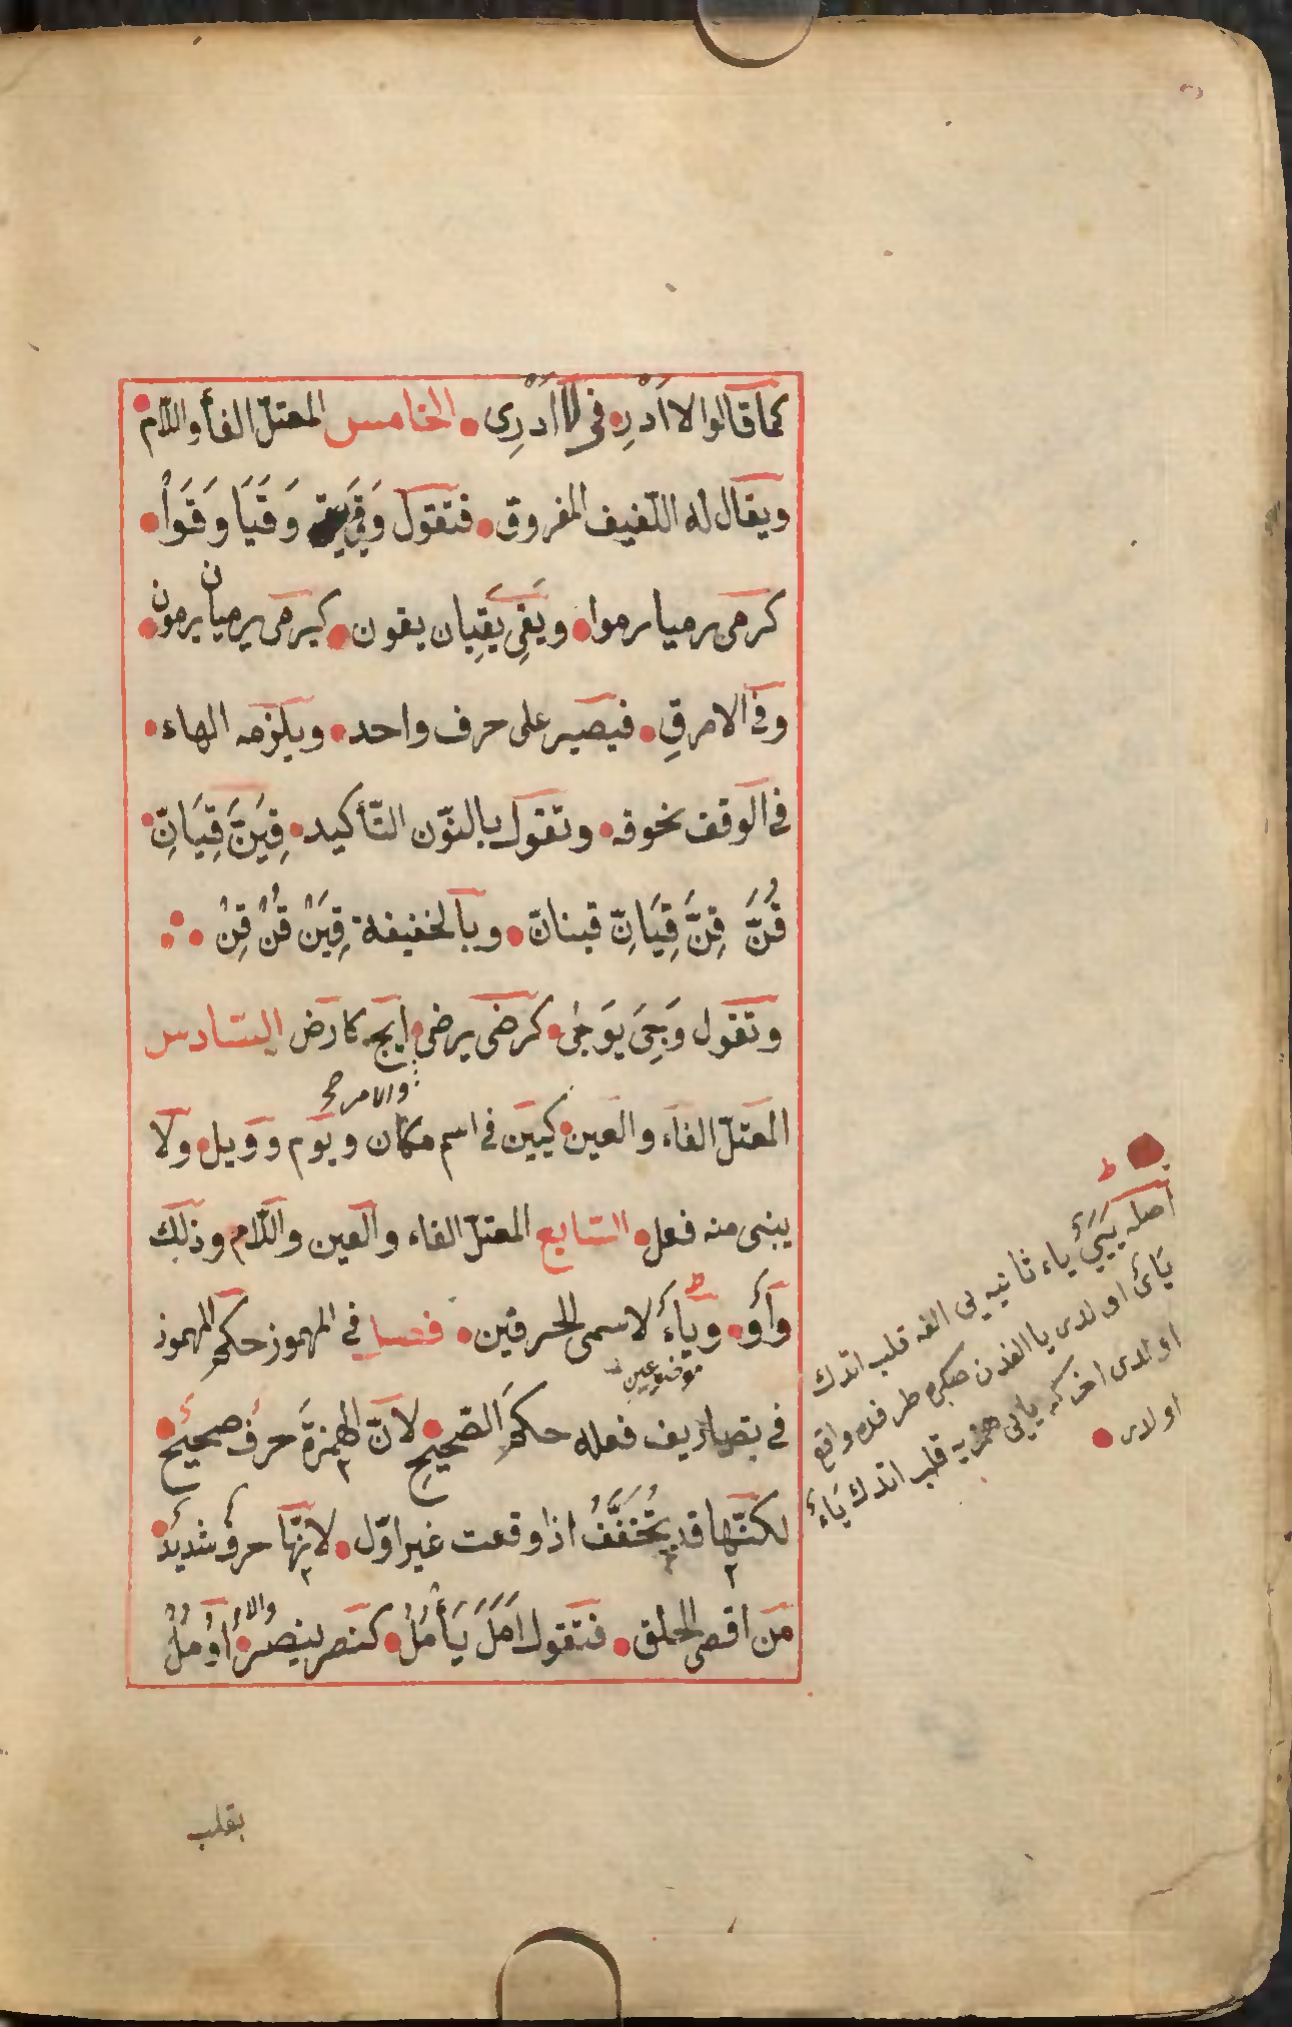 كما قالوا لا اَدْرِ في لا اَدْرِى الخامس المعتلّ الفأ واللّام
ويقال له اللّفيف المفروق فتقول وَقَى وَقَيَا وَقَوْا
كرمى رميا رموا ويَقِى يَقِيان يقون كيرمى يرميان يرمون
وفى الامر قِ فيصير على حرف واحد ويلزمه الهاء
فى الوقف نحو قه وتقول بالنّون التّأكيد قِيَنَّ قِيَانِّ
قُنَّ قِنَّ قِيَانِّ قينانّ وبالخفيفة قِيَنْ قُنْ قِنْ
وتقول وَجِىَ يَوْجٰى كرضى يرضى ايج كارض السّادس
والامر صح
المعتلّ الفاء والعين كيَيَن فى اسم مكان ويَوْم ووَيل ولا
يبنى منه فعل السّابع المعتلّ الفاء والعين واللّام وذلك
وَاَوْ ويَاءْ لاسمى الحرفين فصل فى المهموز حكم المهموز
موضوعين
فى تصاريف فعله حكم الصّحيح لانّ الهمزةَ حرف صحيح
لكنّها قد تُخَفَّفُ اذا وقعت غير اوّل لانّها حرف شديد
من اقصى الحلق فتقول اَمَلَ يَأْمُلُ كنصر ينصر والامر اُوْمُلْ
بقلب
اصله يَيَىٌ ياء ثانيه يى الفه قلب اتدك
يَاىٌ اولدى يا الفدن صكره طرفده واقع
اولدى اخركه يايى همزيه قلب اتدك يَاءٌ
اولدى